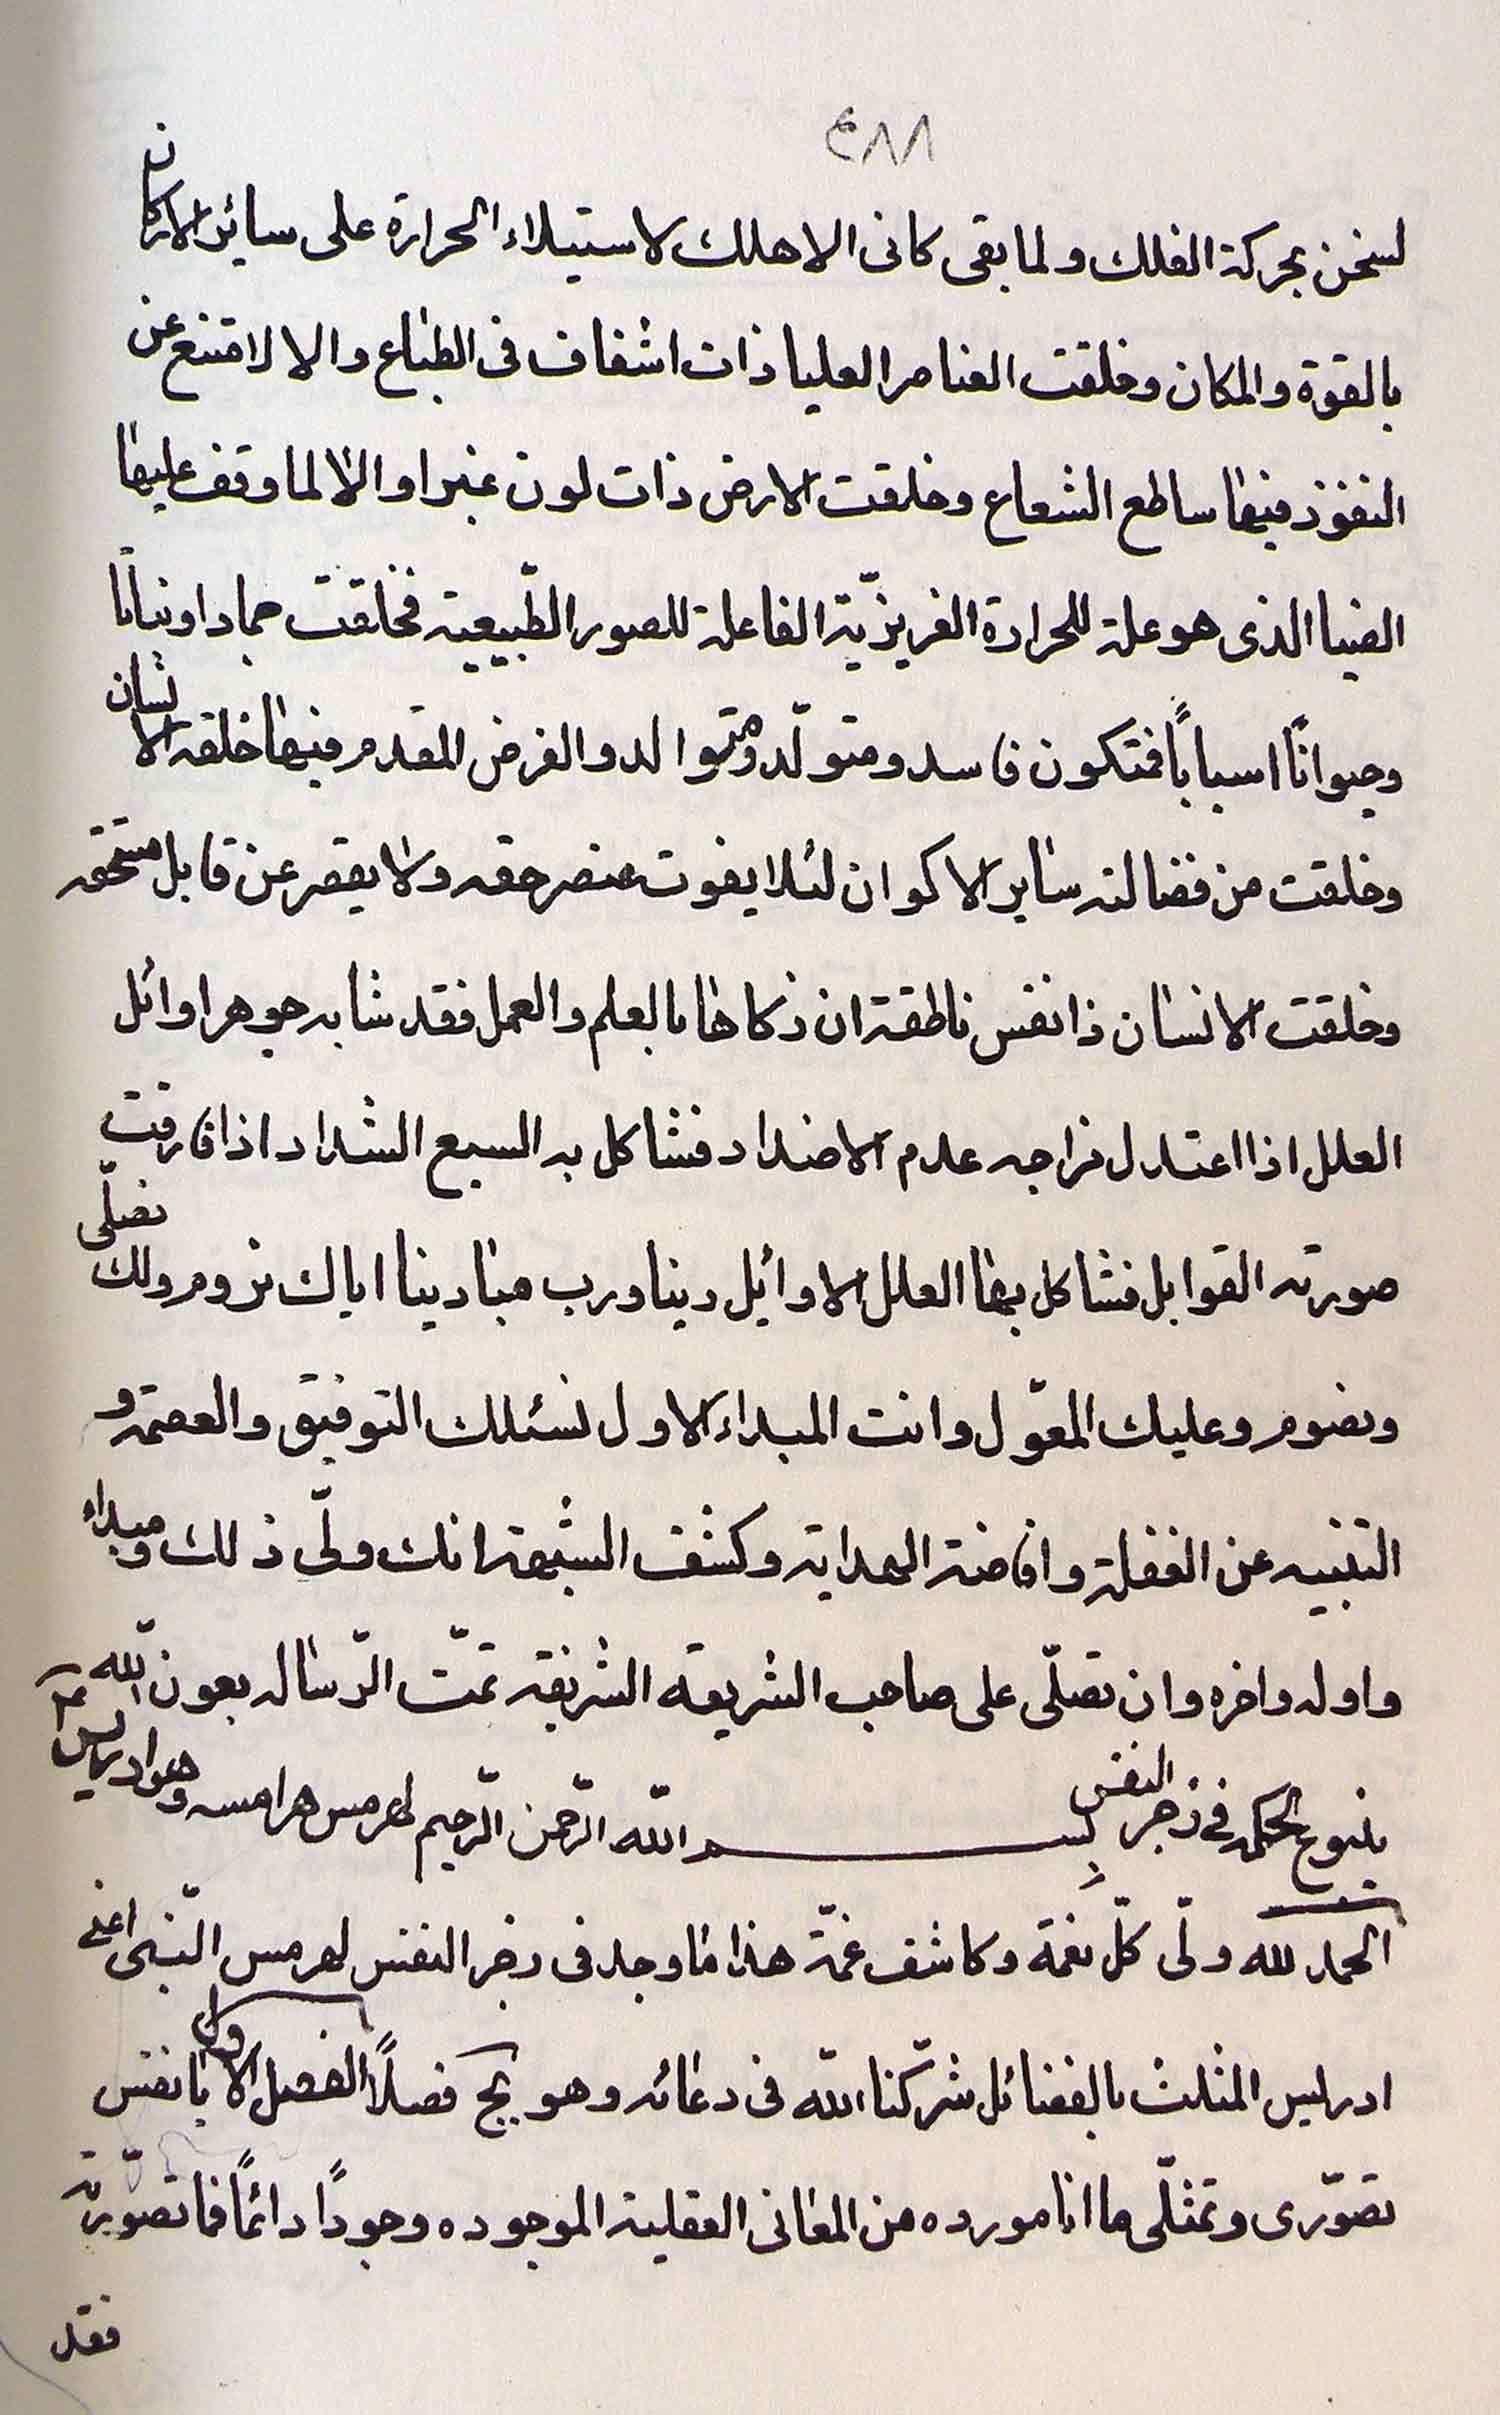 ٤٨٨
لسخن بحركة الفلك ولما بقى كانى الا هلك لاستيلاء الحرارة على سائر الاركان
بالقوة والمكان وخلقت العناصر العليا ذات اشفاف فى الطباع والا لامتنع عن
النفوذ فيها ساطع الشعاع وخلقت الارض ذات لون غبرا والا لما وقف عليها
الضيا الذى هو علة للحرارة الغريزيّة الفاعلة للصور الطّبيعية فخلقت جمادا ونباتا
وحيوانًا اسبابًا فمتكون فاسد ومتولّد ومتوالد والغرض المقدم فيها خلقه الانسان
وخلقت من فضالته سایر الاكوان لئلا يفوت عنصر حقه ولا يقصر عن قابل مستحقه
وخلقت الانسان ذا نفس ناطقة ان زكاها بالعلم والعمل فقد شابه جوهر اوائل
العلل اذا اعتدل مزاجه عدم الاضداد فشاكل به السبع الشداد اذا فارقت
صورته القوابل فشاكل بها العلل الاوايل ربنا ورب مبادينا اياك نروم ولك نصلّى
ونصوم وعليك المعوّل وانت المبداء الاول نسئلك التوفيق والعصمة و
التنبيه عن الغفلة وافاضة الهداية وكشف الشبهة انك ولّى ذلك ومبداء
واوله واخره وان تصلّى على صاحب الشريعه الشريفه تمّت الرّساله بعون اللّه
ينبوع الحكمه فى زجر النفس بسم اللّه الرّحمن الرّحيم لهرمس هرامسه وهو ادريس
الحمد لله ولّى كلّ نعمة وكاشف غمّة هذا ما وجد فى زجر النفس لهرمس النّبى اعنى
ادريس المثلث بالفضائل شرّكنا اللّه فى دعائه وهو يج فصلًا الفصل الاول يا نفس
تصوّرى وتمثلّى ما انا مورده من المعانى العقلية الموجوده وجودًا دائمًا فما تصوّرته
فقد